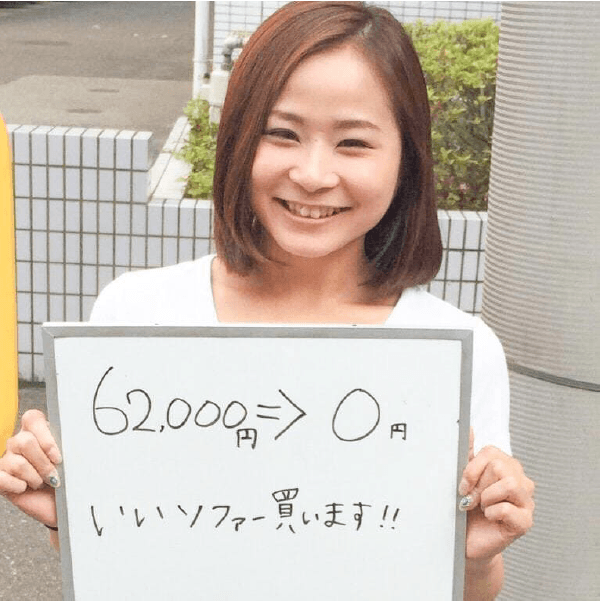 62,000円⇒0円
いいソファー買います!!